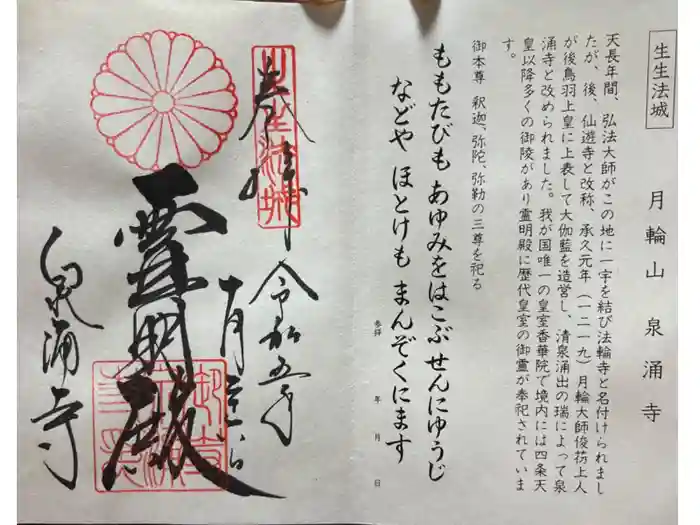 生生法城
月輪山 泉涌寺
天長年間、弘法大師がこの地に一宇を結び法輪寺と名付けられまし
たが、後、仙遊寺と改称、承久元年（一二一九）月輪大師俊芿上人
が後鳥羽上皇に上表して大伽藍を造営し、清泉涌出の瑞によって泉
涌寺と改められました。我が国唯一の皇室香華院で境内には四条天
皇以降多くの御陵があり霊明殿に歴代皇室の御霊が奉祀されていま
す。
御本尊 釈迦、弥陀、弥勒の三尊を祀る
ももたびも あゆみをはこぶせんにゆうじ
などや ほとけも まんぞくにます
参拝 年 月 日
奉拝
生生法城
令和五年
十月
靈明殿
泉涌寺